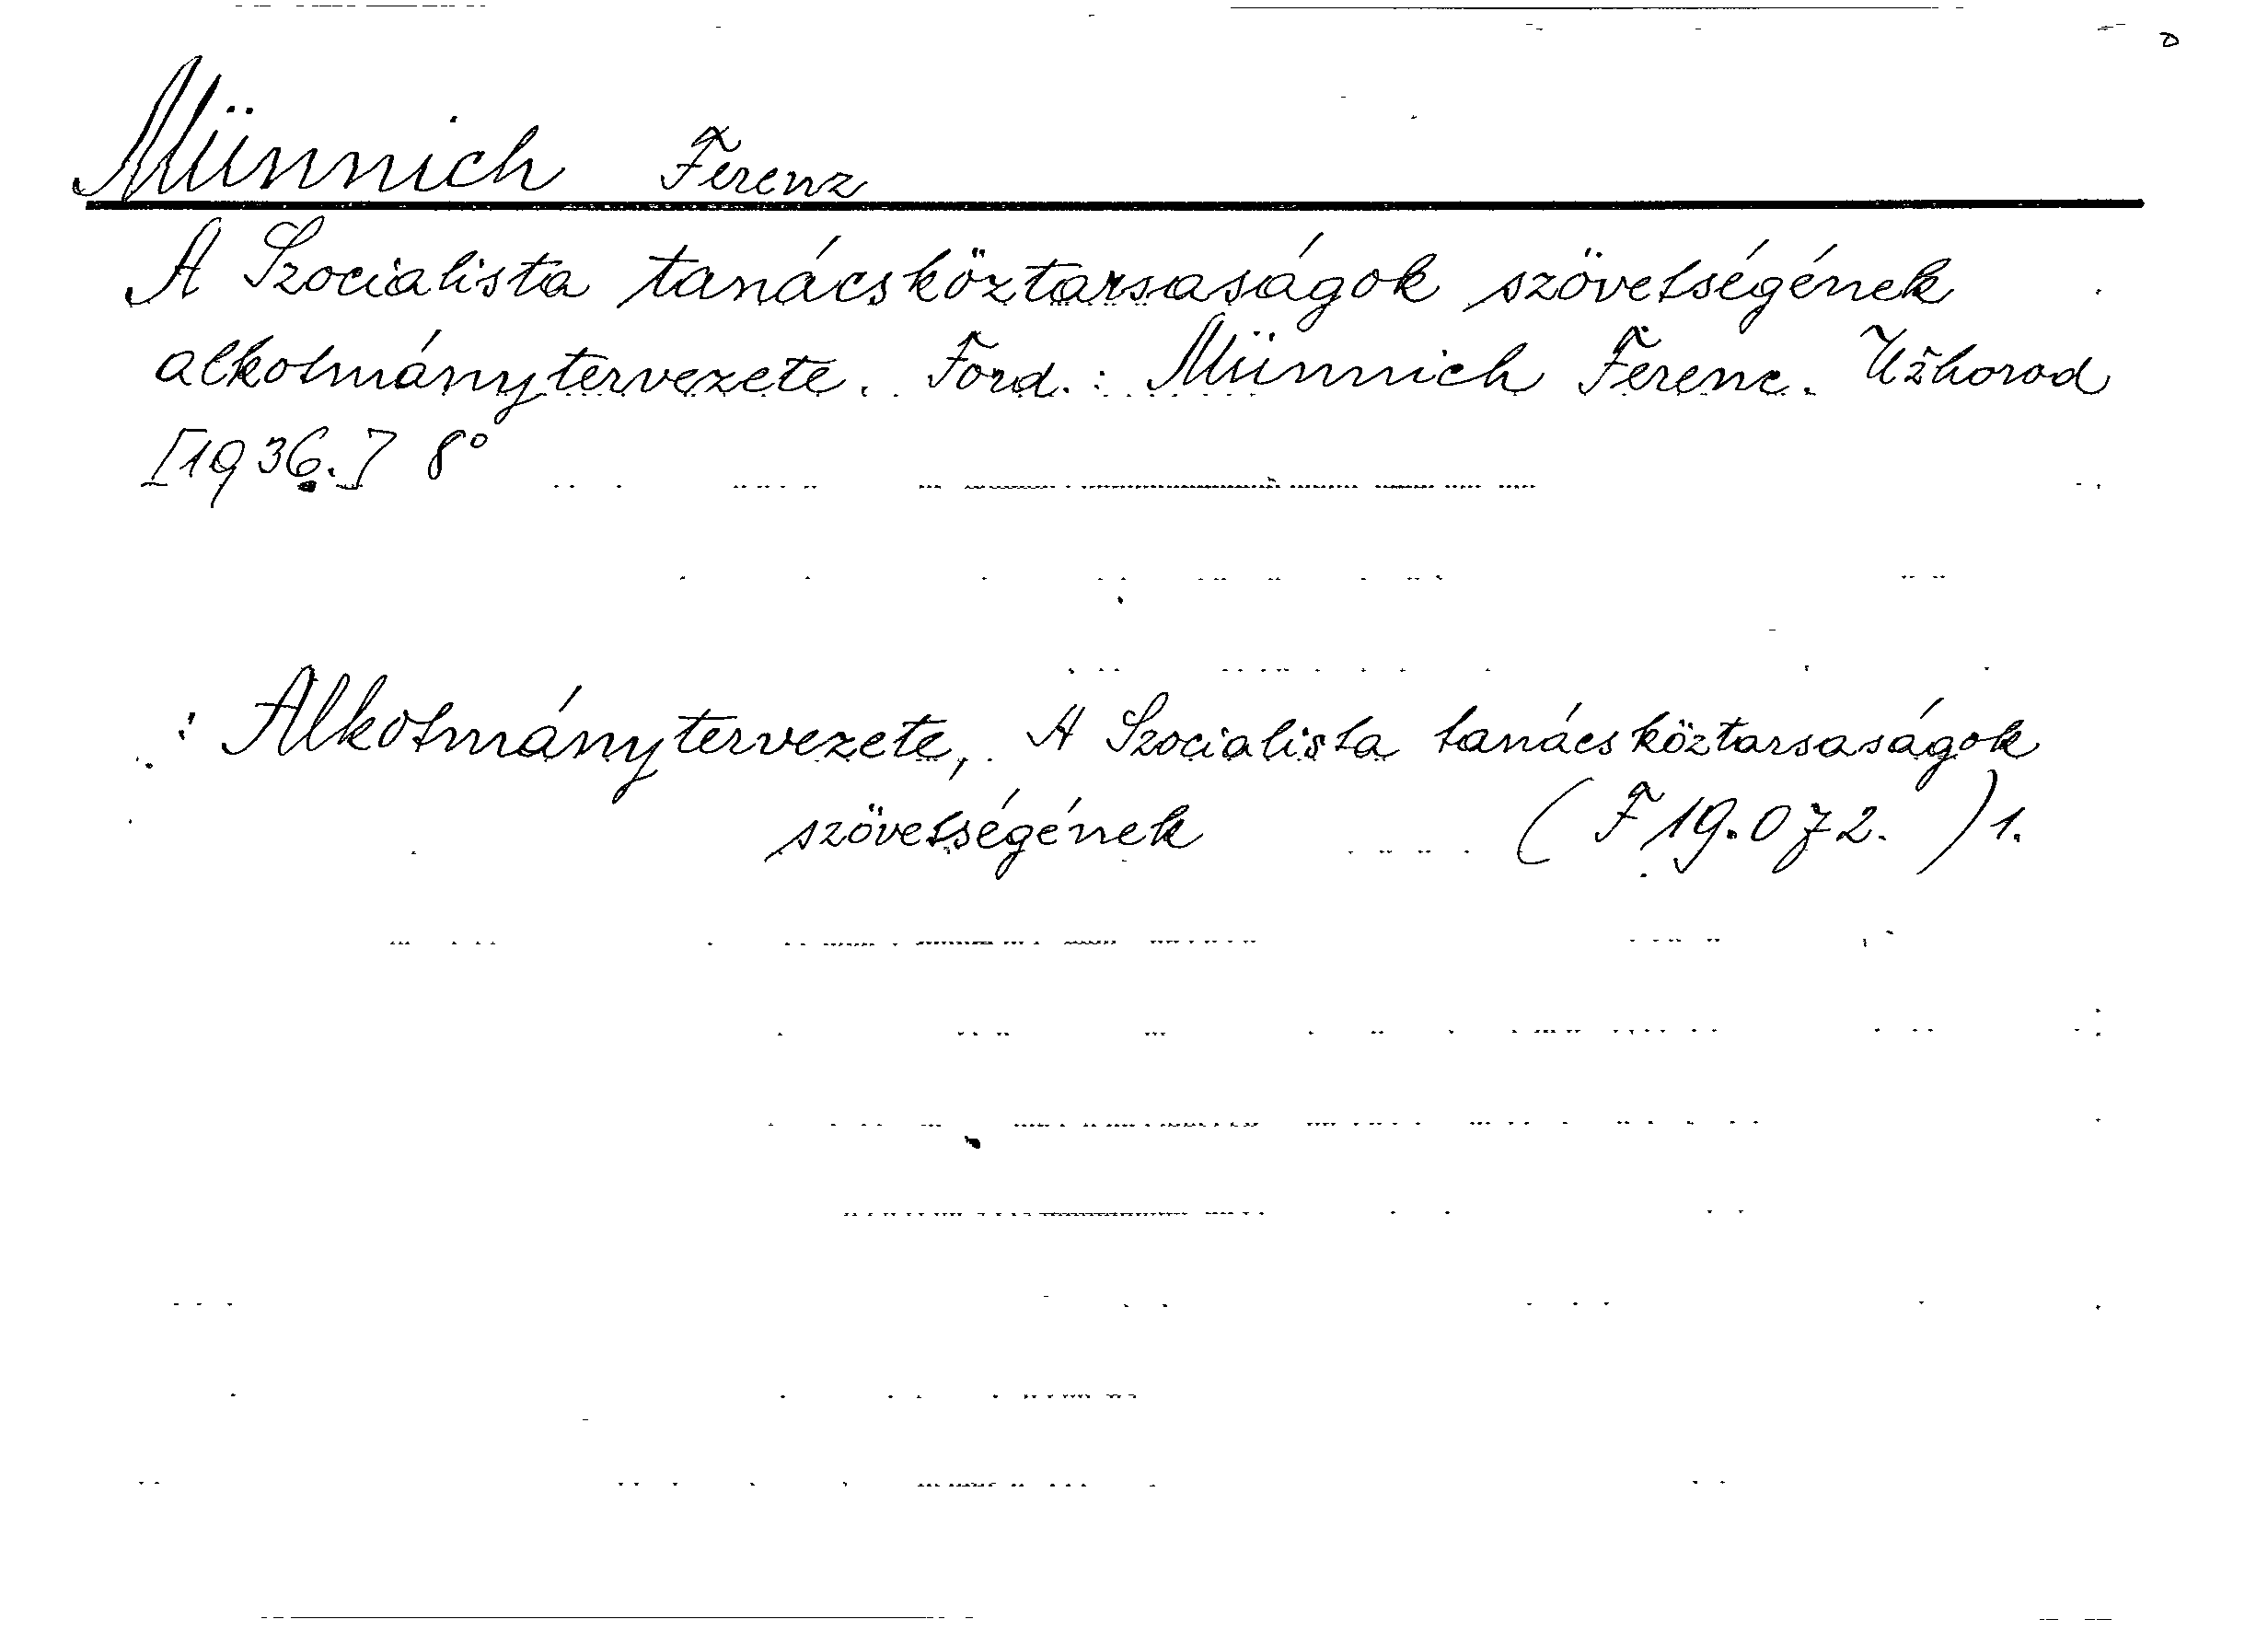 Münnich Ferenz
A Szocialista tanácsköztarsaságok szövetségének
alkotmánytervezete. Ford.: Münnich Ferenc. Užhorod
[1936.] 8°
: Alkotmánytervezete, A Szocialista tanácsköztarsaságok
szövetségének (F 19.072.) 1.